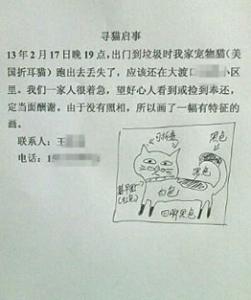 寻猫启事
13年2月17日晚19点,出门到垃圾时我家宠物猫(美
国折耳猫)跑出去丢失了,应该还在大渡口 小区
里。我们一家人很着急,望好心人看到或捡到奉还,
定当面酬谢。由于没有照相,所以画了一幅有特征的
画。
联系人:王
电话:1
黑色
黑色
白色
四脚黑色